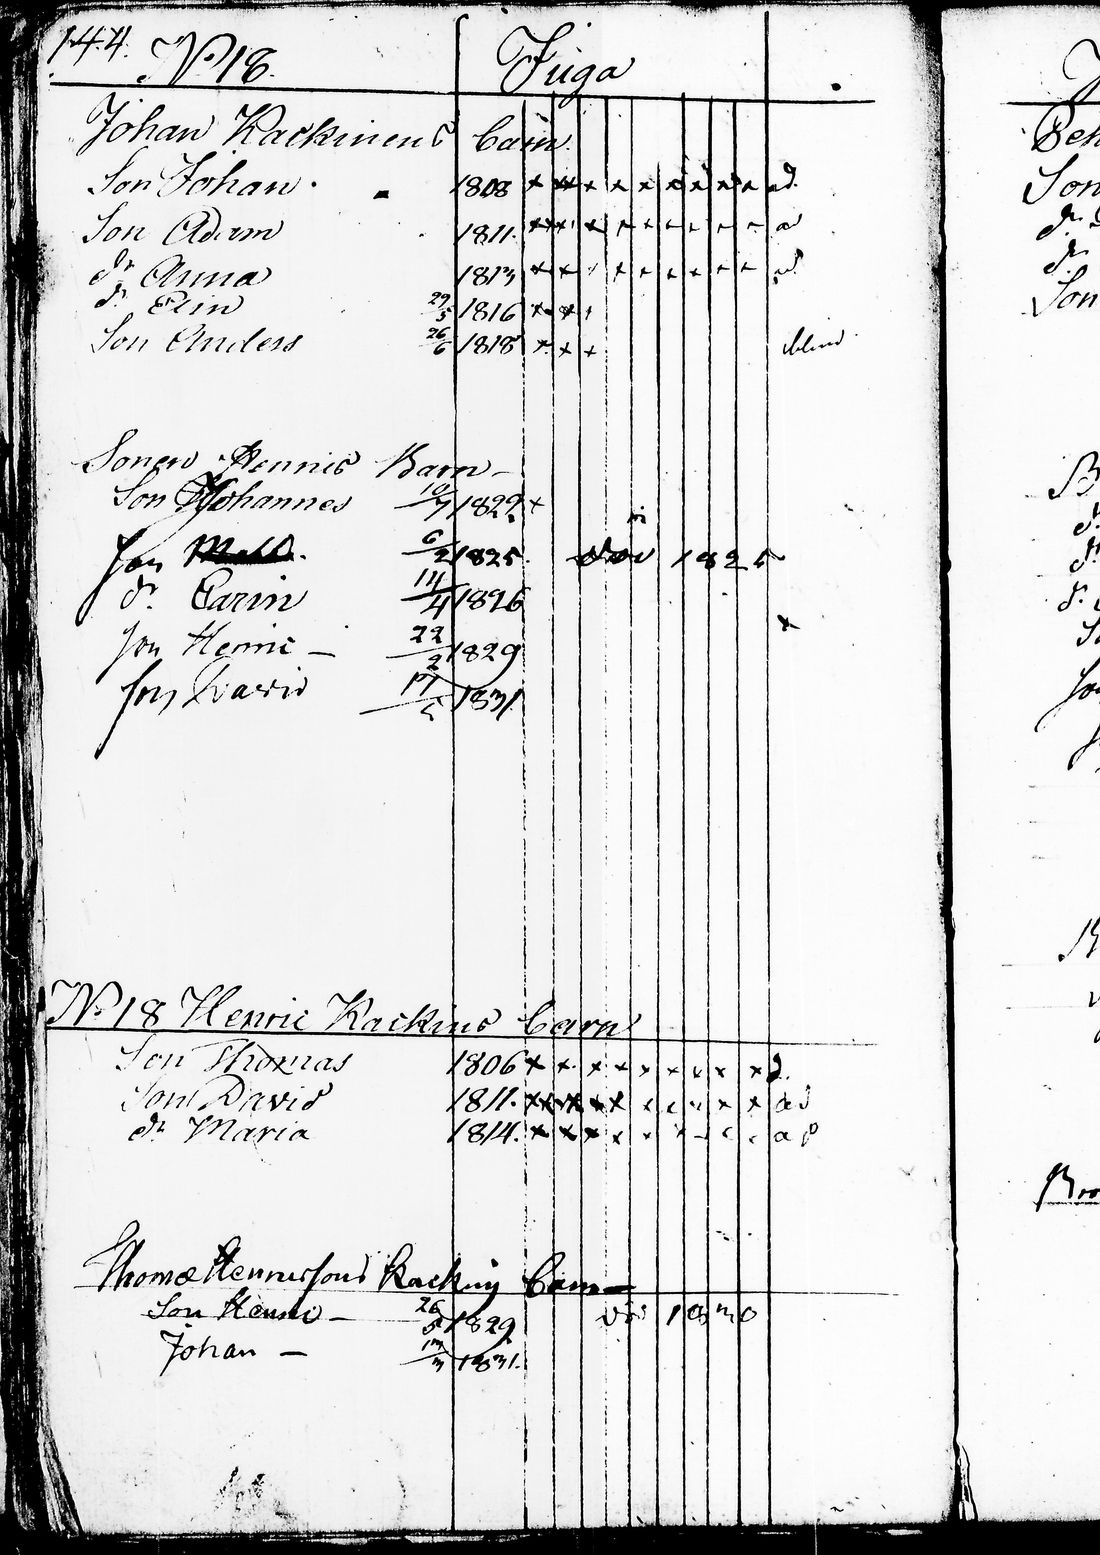 144. No 18. Juga
Johan Kackinens barn
Son Johan 1808 x x x x x x x x x ad.
Son Adam 1811. x x x x x x x x x a
dr. Anna 1813 x x x x x x x x x ad
dr. Elin 29/5 1816 x x x
Son Anders 26/6 1818 x x x blind
Sonen Henrics Barn
Son Johannes 10/7 1822. x
Son 6/2 1825. död 1825
dr. Carin 14/4 1826
Son Henric 22/2 1829
Son David 17/5 1831
No 18 Henric Kackins barn
Son Thomas 1806 x x x x x x x x x
Son David 1811. x x x x x x x x x ad
dr Maria 1814. x x x x x x a
Thomæ Henricsons Kackins barn
Son Henric 26/5 1829 död 1830
Johan 13/3 1831.
Beh
Son
dr.
dr.
Son